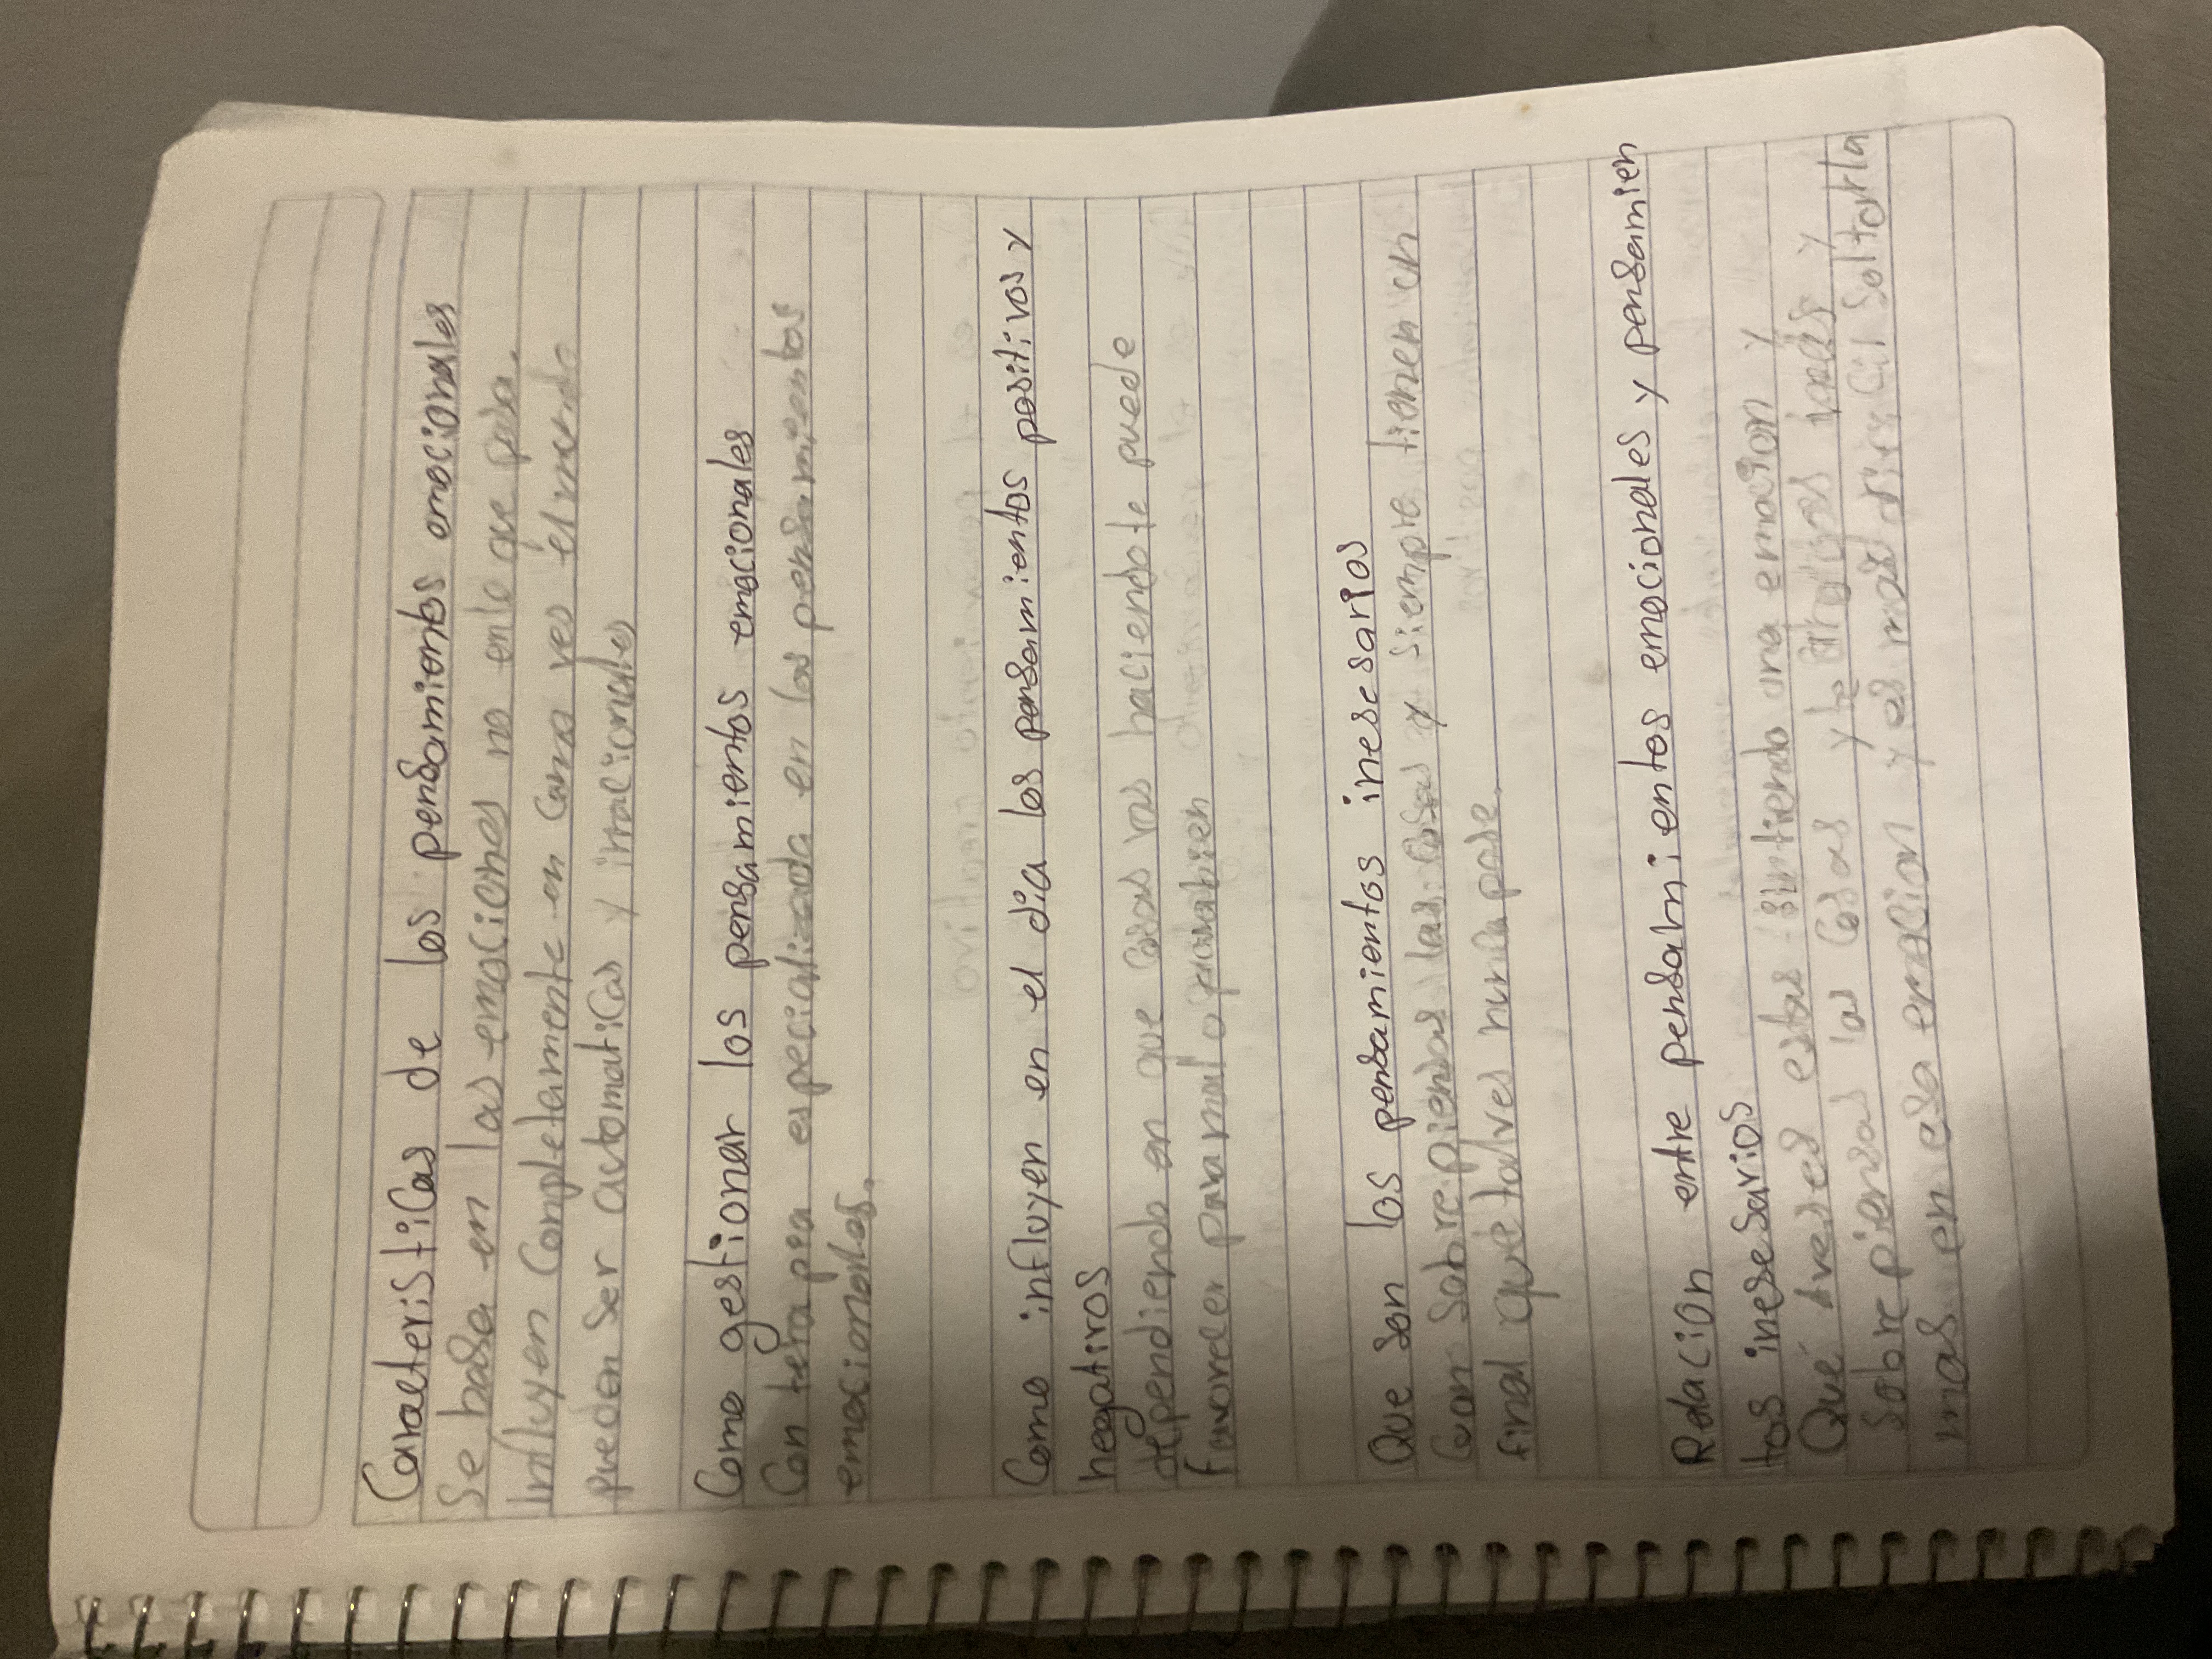 Caracteristicas de los pensamientos emocionales
Se basa en las emociones no en le que pasa.
Influyen Completamente en Como ves el mundo
pueden ser automaticas y irracionales
Como gestionar los pensamientos emocionales
Con terapia especializada en los pensamientos
emocionales.
Como influyen en el dia los pensamientos positivos y
negativos
dependiendo en que cosas vas haciendo te puede
favorecer para mal o para bien
Que son los pensamientos inesesarios
Cuan sobrepiensas las cosas y siempre tienen un
final que talves nunca pase.
Relacion entre pensatmientos emocionales y pensamien
tos inesesarios
Que aveses estas sintiendo una emocion y
sobre piensas las cosas y te y
mas en esa emocion y es mas dificil soltarla